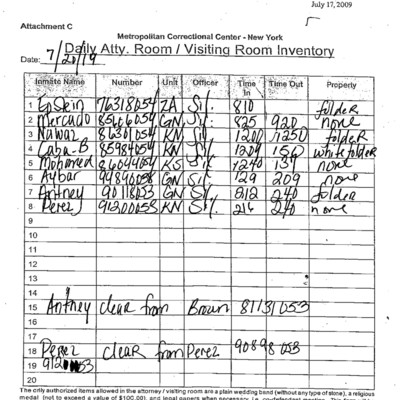 July 17, 2009
Attachment C
Metropolitan Correctional Center - New York
Daily Atty. Room / Visiting Room Inventory
Date: 7/20/19
Inmate Name Number Unit Officer Time In Time Out Property
1 Epstein 76318054 ZA Sil. 810 folder
2 Mercado GN Sil. 825 920 none
3 Nawaz 86301054 KN Sil. 1200 1250 folder
4 85984054 KN Sil. 1209 150 white folder
5 Mohamed 86044054 KS Sil. 1240 none
6 Aybar GN Sil. 129 209 none
7 Antney 90118053 GN Sil. 212 240 folder
8 Perez 91200053 KN Sil. 216 240 none
9
10
11
12
13
14
15 Antney clear from Brown 81131053
16
17
18 Perez clear from Perez 90898053
19 912 53
20
The only authorized items allowed in the attorney / visiting room are a plain wedding band (without any type of stone), a religious
medal (not to exceed a value of $100.00), and legal papers when necessary